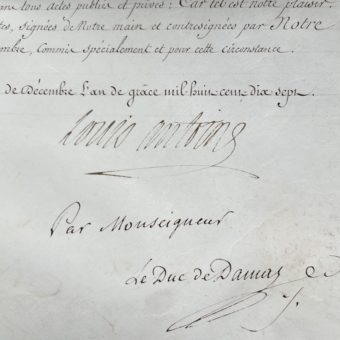 tous actes publics et privés : Car tel est notre plaisir.
signées de Notre main et contresignées par Notre
Commis spécialement et pour cette circonstance.
de Décembre L'an de grâce mil huit cent dix sept.
Louis Antoine
Par Monseigneur
Le Duc de Damas